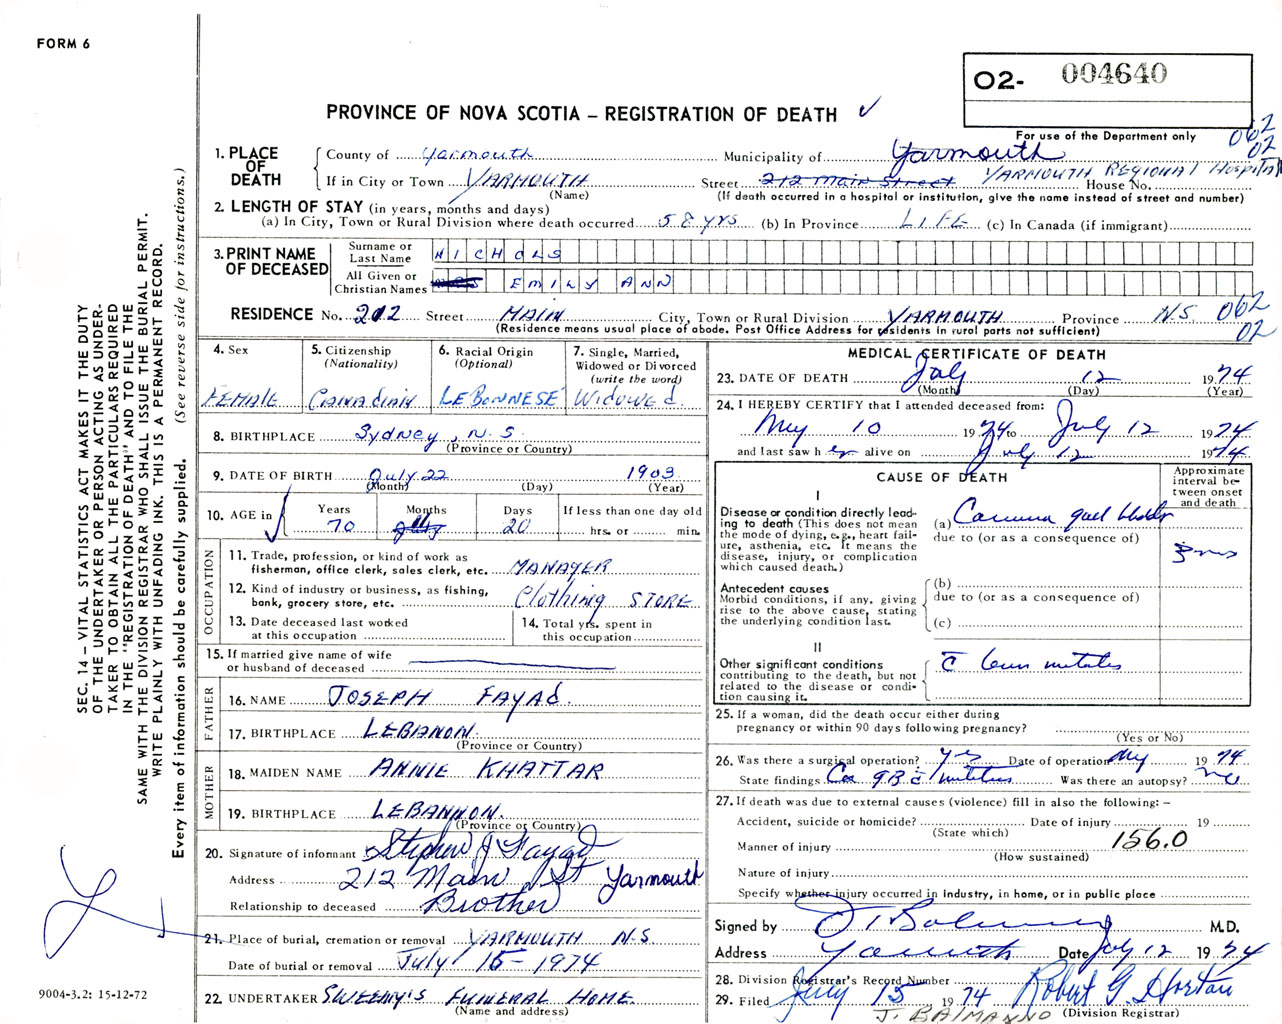 FORM 6
O2- 004640
PROVINCE OF NOVA SCOTIA – REGISTRATION OF DEATH ✓
For use of the Department only
062
02
1. PLACE OF DEATH
County of Yarmouth Municipality of Yarmouth
If in City or Town YARMOUTH Street 212 Main Street YARMOUTH REGIONAL HOSPITAL House No.
(Name) (If death occurred in a hospital or institution, give the name instead of street and number)
2. LENGTH OF STAY (in years, months and days)
(a) In City, Town or Rural Division where death occurred 58 yrs (b) In Province LIFE (c) In Canada (if immigrant)
3. PRINT NAME OF DECEASED
Surname or Last Name NICHOLS
All Given or Christian Names EMILY ANN
RESIDENCE No. 212 Street MAIN City, Town or Rural Division YARMOUTH Province N.S. 062
02
(Residence means usual place of abode. Post Office Address for residents in rural parts not sufficient)
4. Sex
FEMALE
5. Citizenship
(Nationality)
CANADIAN
6. Racial Origin
(Optional)
LEBONNESE
7. Single, Married,
Widowed or Divorced
(write the word)
Widowed.
8. BIRTHPLACE Sydney, N.S.
(Province or Country)
9. DATE OF BIRTH July 22 1903
(Month) (Day) (Year)
10. AGE in
Years Months Days If less than one day old
70 20 hrs. or min.
OCCUPATION
11. Trade, profession, or kind of work as
fisherman, office clerk, sales clerk, etc. MANAGER
12. Kind of industry or business, as fishing,
bank, grocery store, etc. Clothing STORE
13. Date deceased last worked
at this occupation
14. Total yrs. spent in
this occupation
15. If married give name of wife
or husband of deceased
FATHER
16. NAME JOSEPH FAYAd.
17. BIRTHPLACE LEBANON.
(Province or Country)
MOTHER
18. MAIDEN NAME ANNIE KHATTAR
19. BIRTHPLACE LEBANNON.
(Province or Country)
20. Signature of informant Stephen J Fayad
Address 212 Main St Yarmouth
Relationship to deceased Brother
21. Place of burial, cremation or removal YARMOUTH N.S.
Date of burial or removal July 15 – 1974
22. UNDERTAKER SWEENY'S FUNERAL HOME.
(Name and address)
MEDICAL CERTIFICATE OF DEATH
23. DATE OF DEATH July 12 1974
(Month) (Day) (Year)
24. I HEREBY CERTIFY that I attended deceased from:
May 10 1974 to July 12 1974
and last saw h er alive on July 12 1974
CAUSE OF DEATH
Approximate
interval be-
tween onset
and death
I
Disease or condition directly lead-
ing to death (This does not mean
the mode of dying, e.g., heart fail-
ure, asthenia, etc. It means the
disease, injury, or complication
which caused death.)
(a) Carcinoma gall bladder
due to (or as a consequence of)
3 mos
Antecedent causes
Morbid conditions, if any, giving
rise to the above cause, stating
the underlying condition last.
(b)
due to (or as a consequence of)
(c)
II
Other significant conditions
contributing to the death, but not
related to the disease or condi-
tion causing it.
c̄ liver metastes
25. If a woman, did the death occur either during
pregnancy or within 90 days following pregnancy?
(Yes or No)
26. Was there a surgical operation? yes Date of operation May 1974
State findings Ca GB c̄ Was there an autopsy? no
27. If death was due to external causes (violence) fill in also the following: –
Accident, suicide or homicide? Date of injury 19
(State which)
Manner of injury 156.0
(How sustained)
Nature of injury
Specify whether injury occurred in industry, in home, or in public place
Signed by M.D.
Address Yarmouth Date July 12 1974
28. Division Registrar's Record Number
29. Filed July 15 1974 Robert G. Horton
(Division Registrar)
J. BALMANNO
SEC. 14 – VITAL STATISTICS ACT MAKES IT THE DUTY
OF THE UNDERTAKER OR PERSON ACTING AS UNDER-
TAKER TO OBTAIN ALL THE PARTICULARS REQUIRED
IN THE "REGISTRATION OF DEATH" AND TO FILE THE
SAME WITH THE DIVISION REGISTRAR WHO SHALL ISSUE THE BURIAL PERMIT.
WRITE PLAINLY WITH UNFADING INK. THIS IS A PERMANENT RECORD.
Every item of information should be carefully supplied. (See reverse side for instructions.)
9004-3.2: 15-12-72